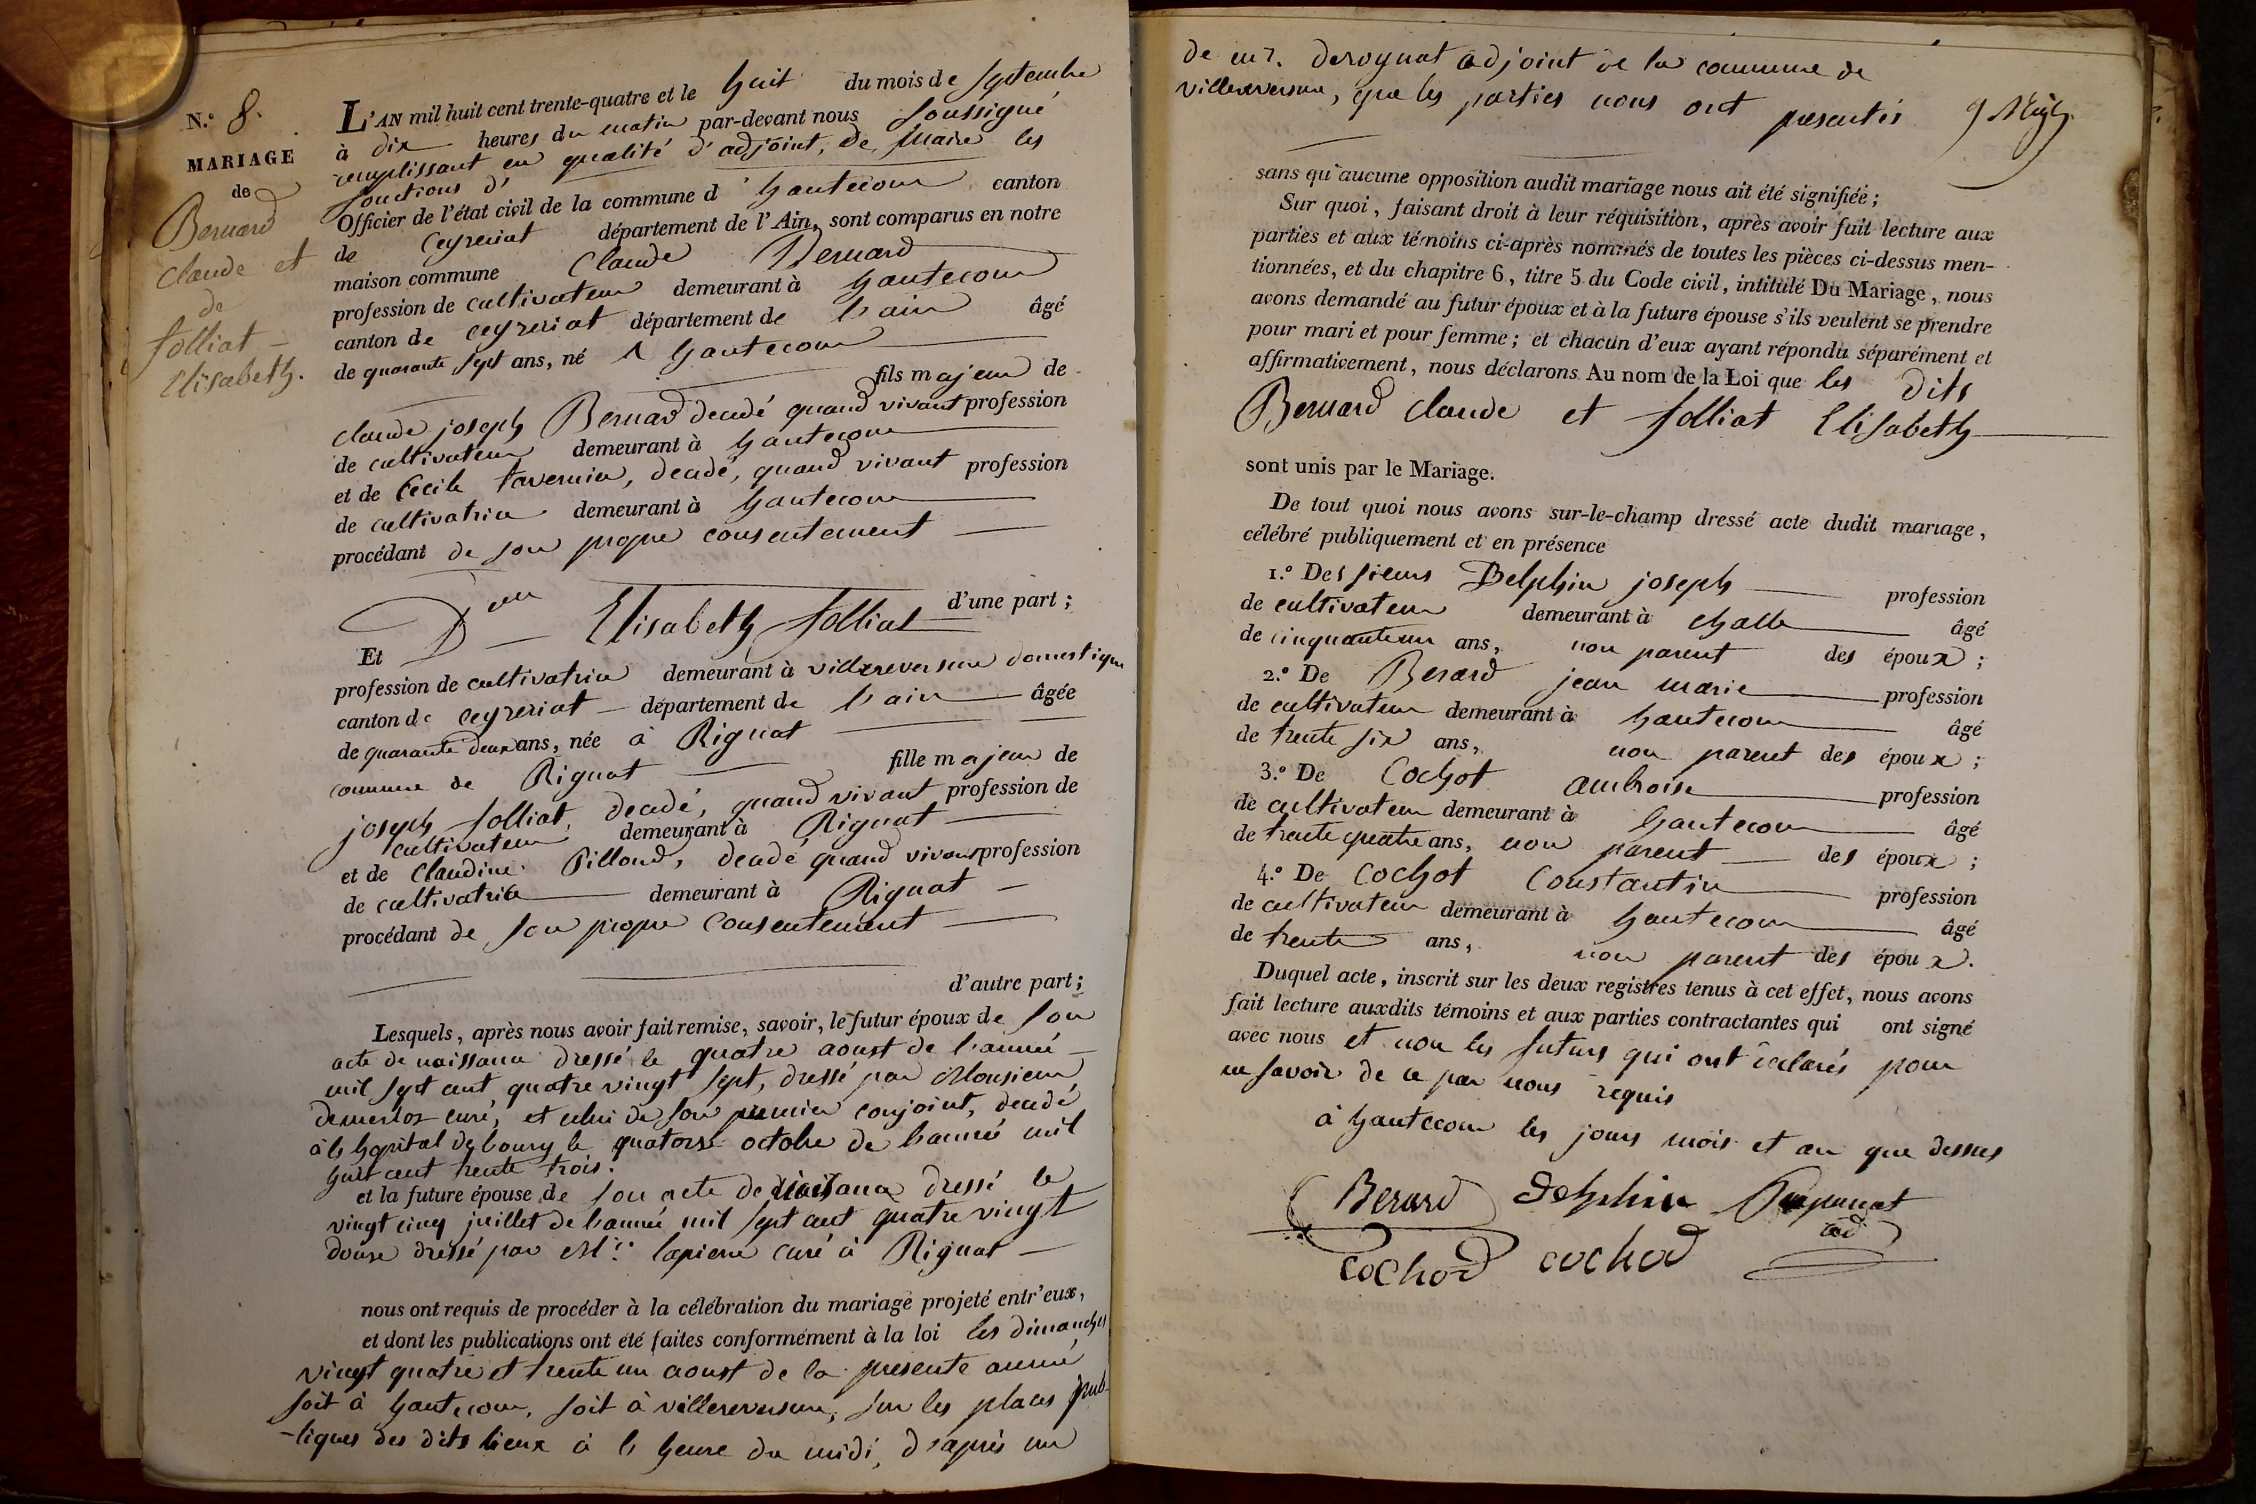 N.º 8.
MARIAGE
de
Bernard
Claude et
de
Solliat
Elisabeth.
L'AN mil huit cent trente-quatre et le huit du mois de septembre
à dix heures du matin par-devant nous soussigné
remplissant en qualité d'adjoint, de Maire les
fonctions d'
Officier de l'état civil de la commune d'hautecour canton
de Ceyzeriat département de l'Ain, sont comparus en notre
maison commune Claude Bernard
profession de cultivateur demeurant à hautecour
canton de ceyzeriat département de l'ain âgé
de quarante sept ans, né à hautecour
fils majeur de
claude joseph Bernard decedé quand vivant profession
de cultivateur demeurant à hautecour
et de Cecile tavernier, decedé, quand vivant profession
de cultivatrice demeurant à hautecour
procédant de son propre consentement
d'une part ;
Et Dlle Elisabeth Solliat
profession de cultivatrice demeurant à villereversure domestique
canton de ceyzeriat département de l'ain âgée
de quarante deux ans, née à Rignat
commune de Rignat fille majeur de
joseph Solliat, decedé, quand vivant profession de
cultivateur demeurant à Rignat
et de Claudine Pilloud, decedé quand vivant profession
de cultivatrice demeurant à Rignat
procédant de son propre consentement
d'autre part ;
Lesquels, après nous avoir fait remise, savoir, le futur époux de son
acte de naissance dressé le quatre aoust de l'année
mil sept cent quatre vingt sept, dressé par Monsieur
curé, et celui de son premier conjoint, decedé
à l'hopital de bourg le quatorze octobre de l'année mil
huit cent trente trois.
et la future épouse de son acte de naissance dressé le
vingt cinq juillet de l'année mil sept cent quatre vingt
douze dressé par Mr. lapierre curé à Rignat
nous ont requis de procéder à la célébration du mariage projeté entr'eux,
et dont les publications ont été faites conformément à la loi les dimanches
vingt quatre et trente un aoust de la presente année
soit à hautecour, soit à villereversure, sur les places pub-
-liques des dits lieux à l'heure du midi, d'après un
de mr. deroynat adjoint de la commune de
villereversure, que les parties nous ont presentés
sans qu'aucune opposition audit mariage nous ait été signifiée ;
Sur quoi, faisant droit à leur réquisition, après avoir fait lecture aux
parties et aux témoins ci-après nommés de toutes les pièces ci-dessus men-
tionnées, et du chapitre 6, titre 5 du Code civil, intitulé Du Mariage, nous
avons demandé au futur époux et à la future épouse s'ils veulent se prendre
pour mari et pour femme ; et chacun d'eux ayant répondu séparément et
affirmativement, nous déclarons Au nom de la Loi que les dits
Bernard claude et Solliat Elisabeth
sont unis par le Mariage.
De tout quoi nous avons sur-le-champ dressé acte dudit mariage,
célébré publiquement et en présence
1.º Des sieurs Delphin joseph profession
de cultivateur demeurant à challe âgé
de cinquante un ans, non parent des époux ;
2.º De Berard jean marie profession
de cultivateur demeurant à hautecour âgé
de trente six ans, non parent des époux ;
3.º De Cochot ambroise profession
de cultivateur demeurant à hautecour âgé
de trente quatre ans, non parent des époux ;
4.º De Cochot Constantin profession
de cultivateur demeurant à hautecour âgé
de trente ans, non parent des époux.
Duquel acte, inscrit sur les deux registres tenus à cet effet, nous avons
fait lecture auxdits témoins et aux parties contractantes qui ont signé
avec nous et non les futurs qui ont déclarés pour
ne savoir de ce par nous requis
à hautecour les jours mois et an que dessus
Berard Delphin
ad
Cochod cochod